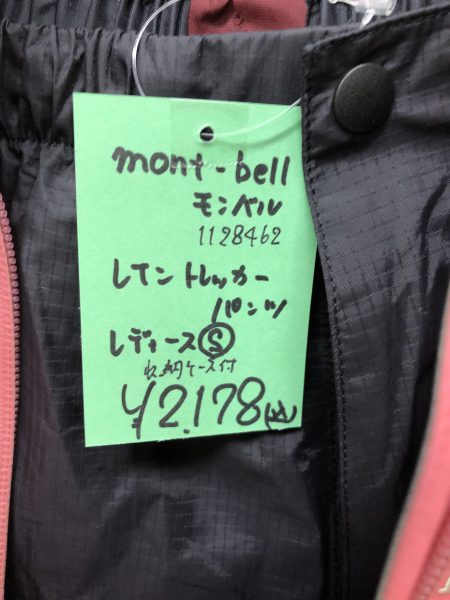 mont-bell
モンベル
1128462
レイントレッカー
パンツ
レディースⓈ
収納ケース付
¥2.178(込)